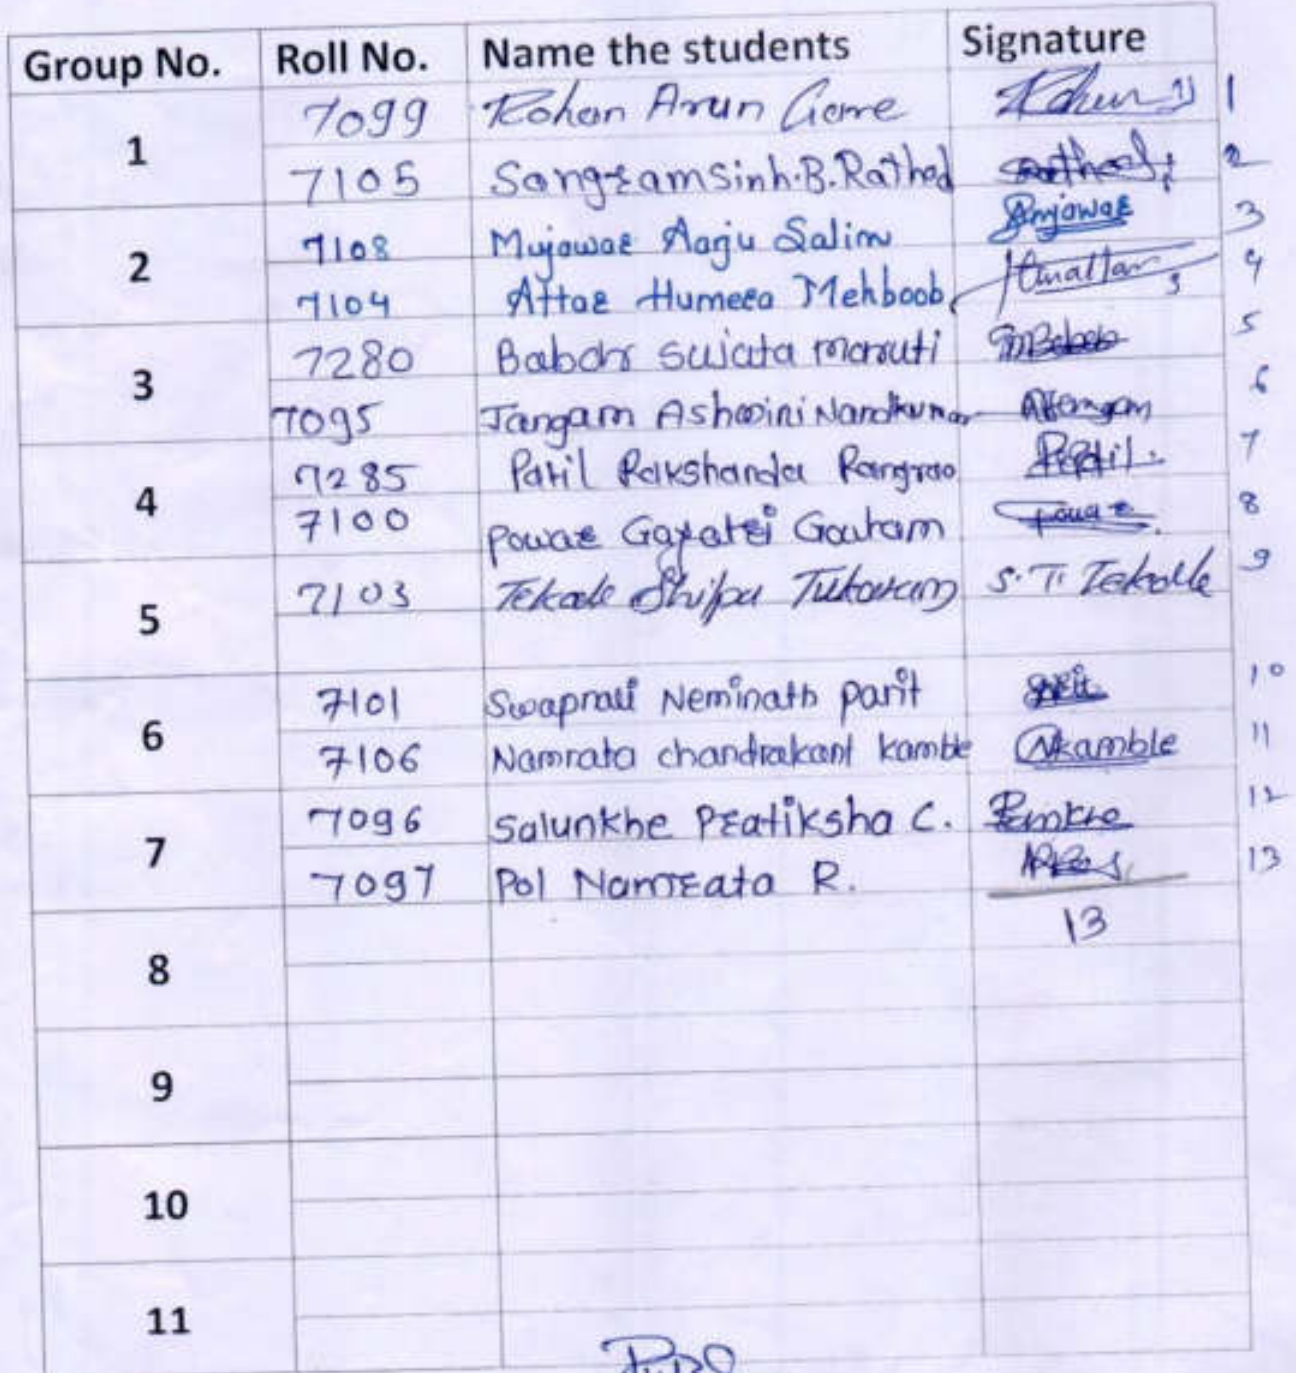 Group No. Roll No. Name the students Signature
1 7099 Rohan Arun Gorre 1
7105 Sangramsinh.B.Rathod 2
2 7108 Mujawar Aarju Salim Amjawar 3
7104 Attar Humera Mehboob 4
3 7280 Babar sujata maruti 5
7095 Jangam Ashwini Nandkumar 6
4 7285 Patil Rakshanda Rangrao 7
7100 Powar Gayatri Goutam 8
5 7103 Tekale Shilpa Tukaram S.T. Tekale 9
6 7101 Swapnali Neminath parit 10
7106 Namrata chandrakant kamble Nkamble 11
7 7096 Salunkhe Pratiksha C. 12
7097 Pol Namrata R. 13
13
8
9
10
11